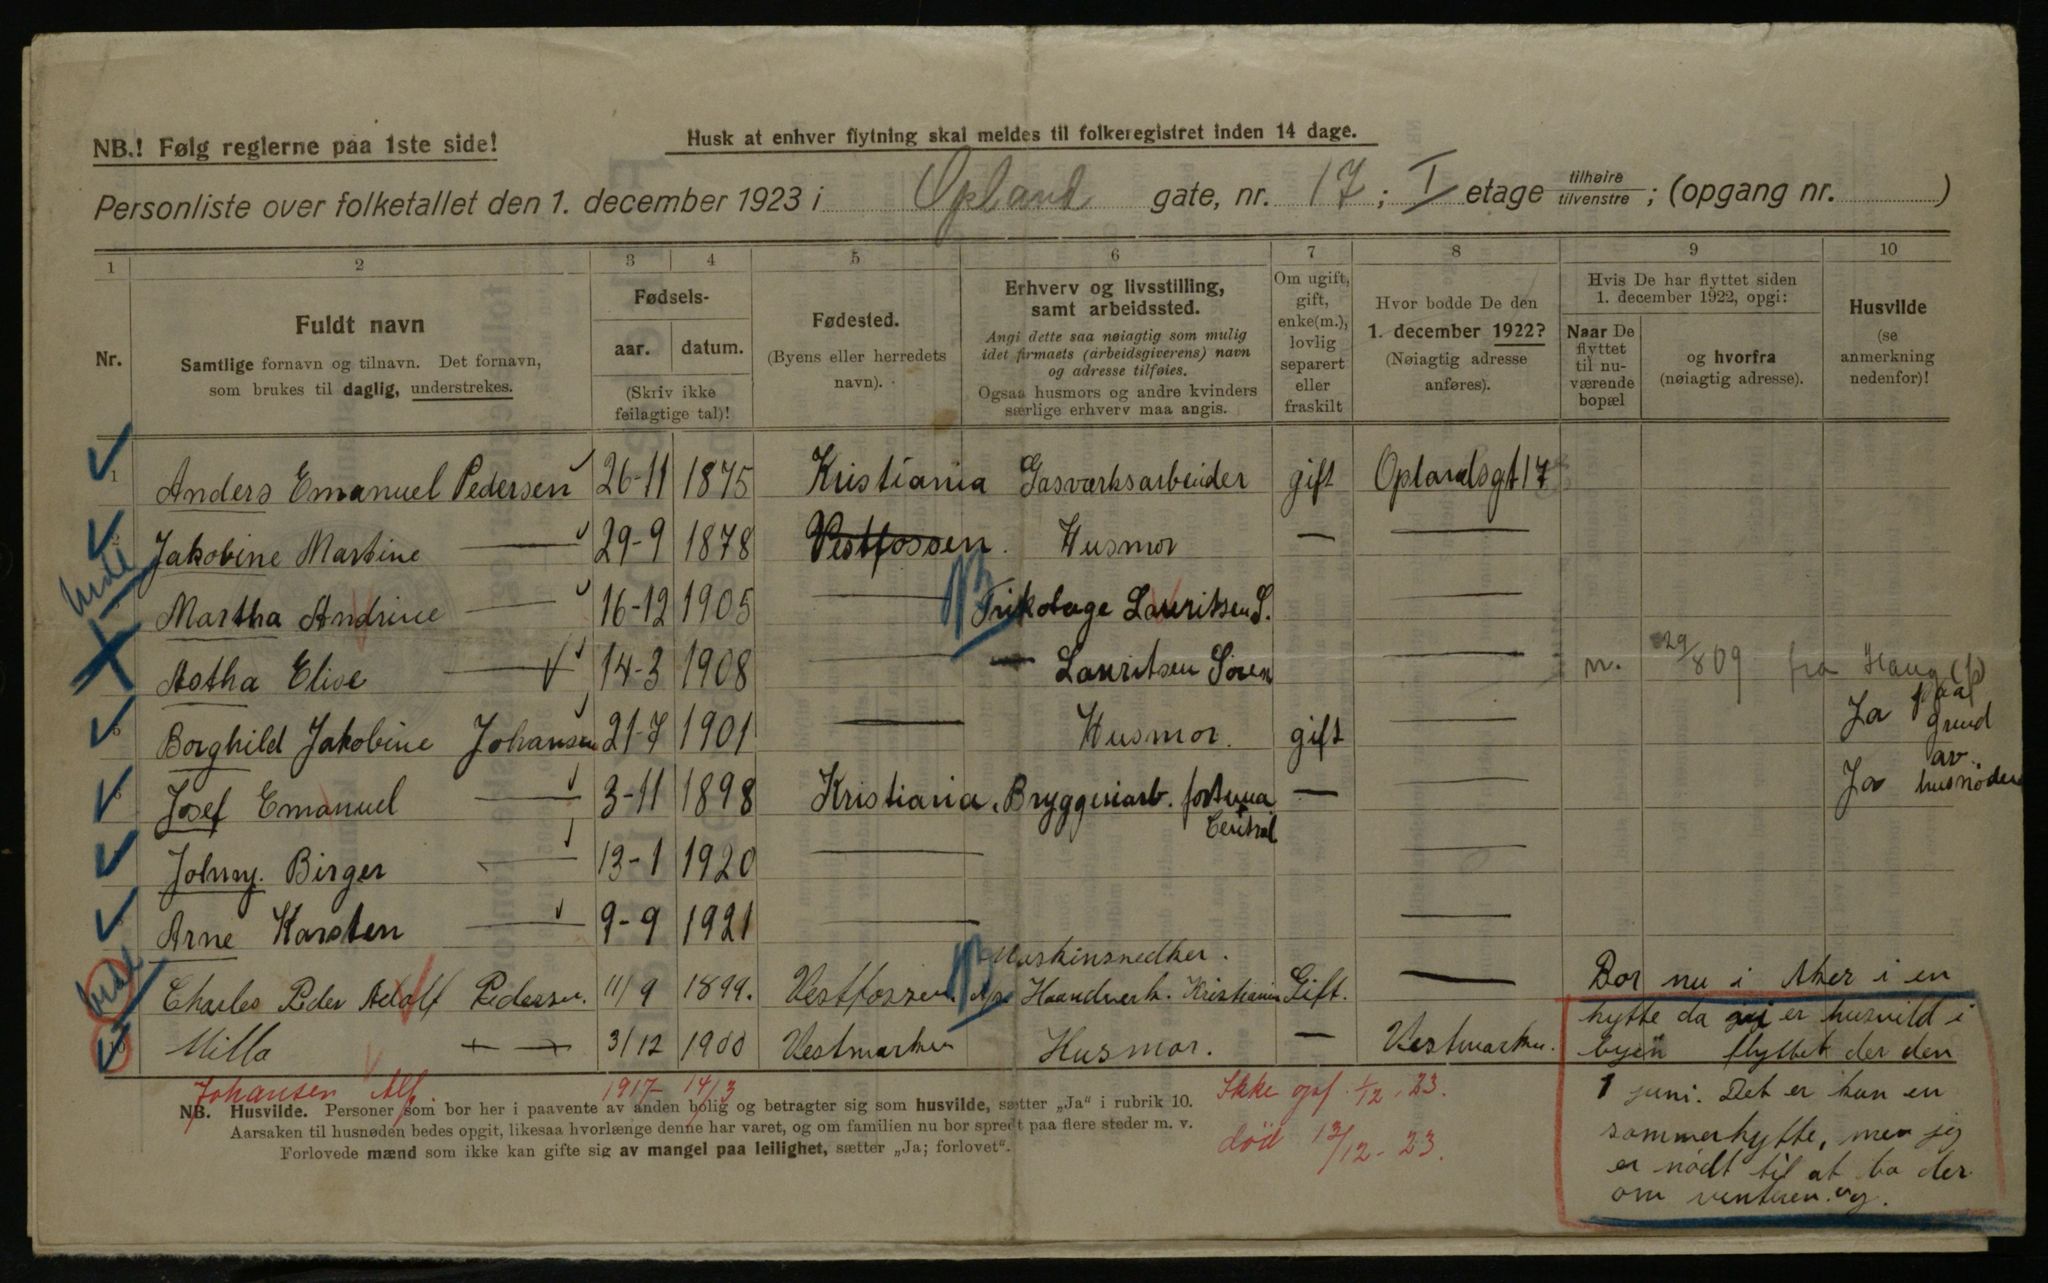 NB.! Følg reglerne paa 1ste side!
Husk at enhver flytning skal meldes til folkeregistret inden 14 dage.
Personliste over folketallet den 1. december 1923 i Opland gate, nr. 17 ; I etage tilhøire tilvenstre ; (opgang nr. )
1 2 3 4 5 6 7 8 9 10
Nr.
Fuldt navn
Samtlige fornavn og tilnavn. Det fornavn,
som brukes til daglig, understrekes.
Fødsels-
aar. datum.
(Skriv ikke
feilagtige tal)!
Fødested.
(Byens eller herredets
navn).
Erhverv og livsstilling,
samt arbeidssted.
Angi dette saa nøiagtig som mulig
idet firmaets (arbeidsgiverens) navn
og adresse tilføies.
Ogsaa husmors og andre kvinders
særlige erhverv maa angis.
Om ugift,
gift,
enke(m.),
lovlig
separert
eller
fraskilt
Hvor bodde De den
1. december 1922?
(Nøiagtig adresse
anføres).
Hvis De har flyttet siden
1. december 1922, opgi:
Naar De
flyttet
til nu-
værende
bopæl
og hvorfra
(nøiagtig adresse).
Husvilde
(se
anmerkning
nedenfor)!
1 Anders Emanuel Pedersen 26-11 1875 Kristiania Gasværksarbeider gift Oplandsgt 17
Jakobine Martine — 29-9 1878 Vestfossen. Husmor — —
Martha Andrine — 16-12 1905 — Trikotage Lauritsen S. —
Astha Elive — 14-3 1908 — — Lauritsen Sören — n. 29/8 09 fra Haug (p)
Borghild Jakobine Johansen 21-7 1901 — Husmor. gift — Ja paa grund
Josef Emanuel — 3-11 1898 Kristiania. Bryggeriarb. fortuna — — Ja av husnöden
Central
Johnny. Birger — 13-1 1920 — —
Arne Karsten — 9-9 1921 — —
Maskinsnedker.
Charles Peder Adolf Pedersen. 11/9 1899. Vestfossen. A/s Haandverk. Kristiania Gift. — Bor nu i Aker i en
Milla — — 3/12 1900 Vestmarken Husmor. — Vestmarken.
hytte da er husvild i
byen flyttet der den
1 juni. Det er kun en
sommerhytte, men jeg
er nödt til at bo der
om vinteren og.
Johansen Alf 1917 14/3 Ikke opf. 1/12. 23.
død 13/12 - 23.
NB. Husvilde. Personer som bor her i paavente av anden bolig og betragter sig som husvilde, sætter „Ja" i rubrik 10.
Aarsaken til husnøden bedes opgit, likesaa hvorlænge denne har varet, og om familien nu bor spredt paa flere steder m. v.
Forlovede mænd som ikke kan gifte sig av mangel paa leilighet, sætter „Ja; forlovet".